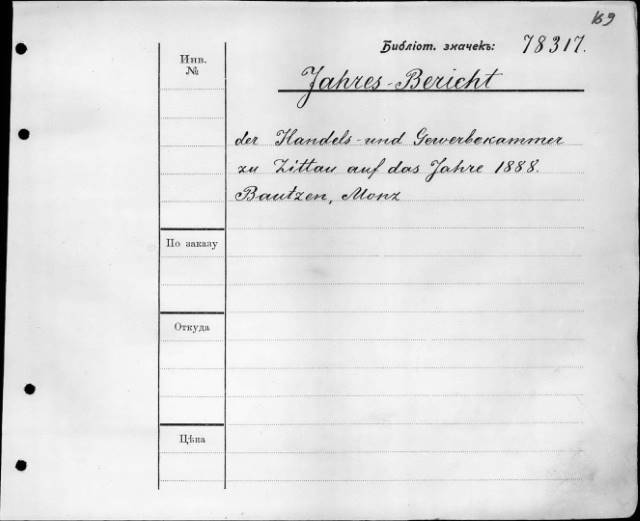 169
Библіот. значекъ: 78317.
Инв. №
Jahres-Bericht
der Handels- und Gewerbekammer
zu Zittau auf das Jahre 1888.
Bautzen, Monz
По заказу
Откуда
Цѣна